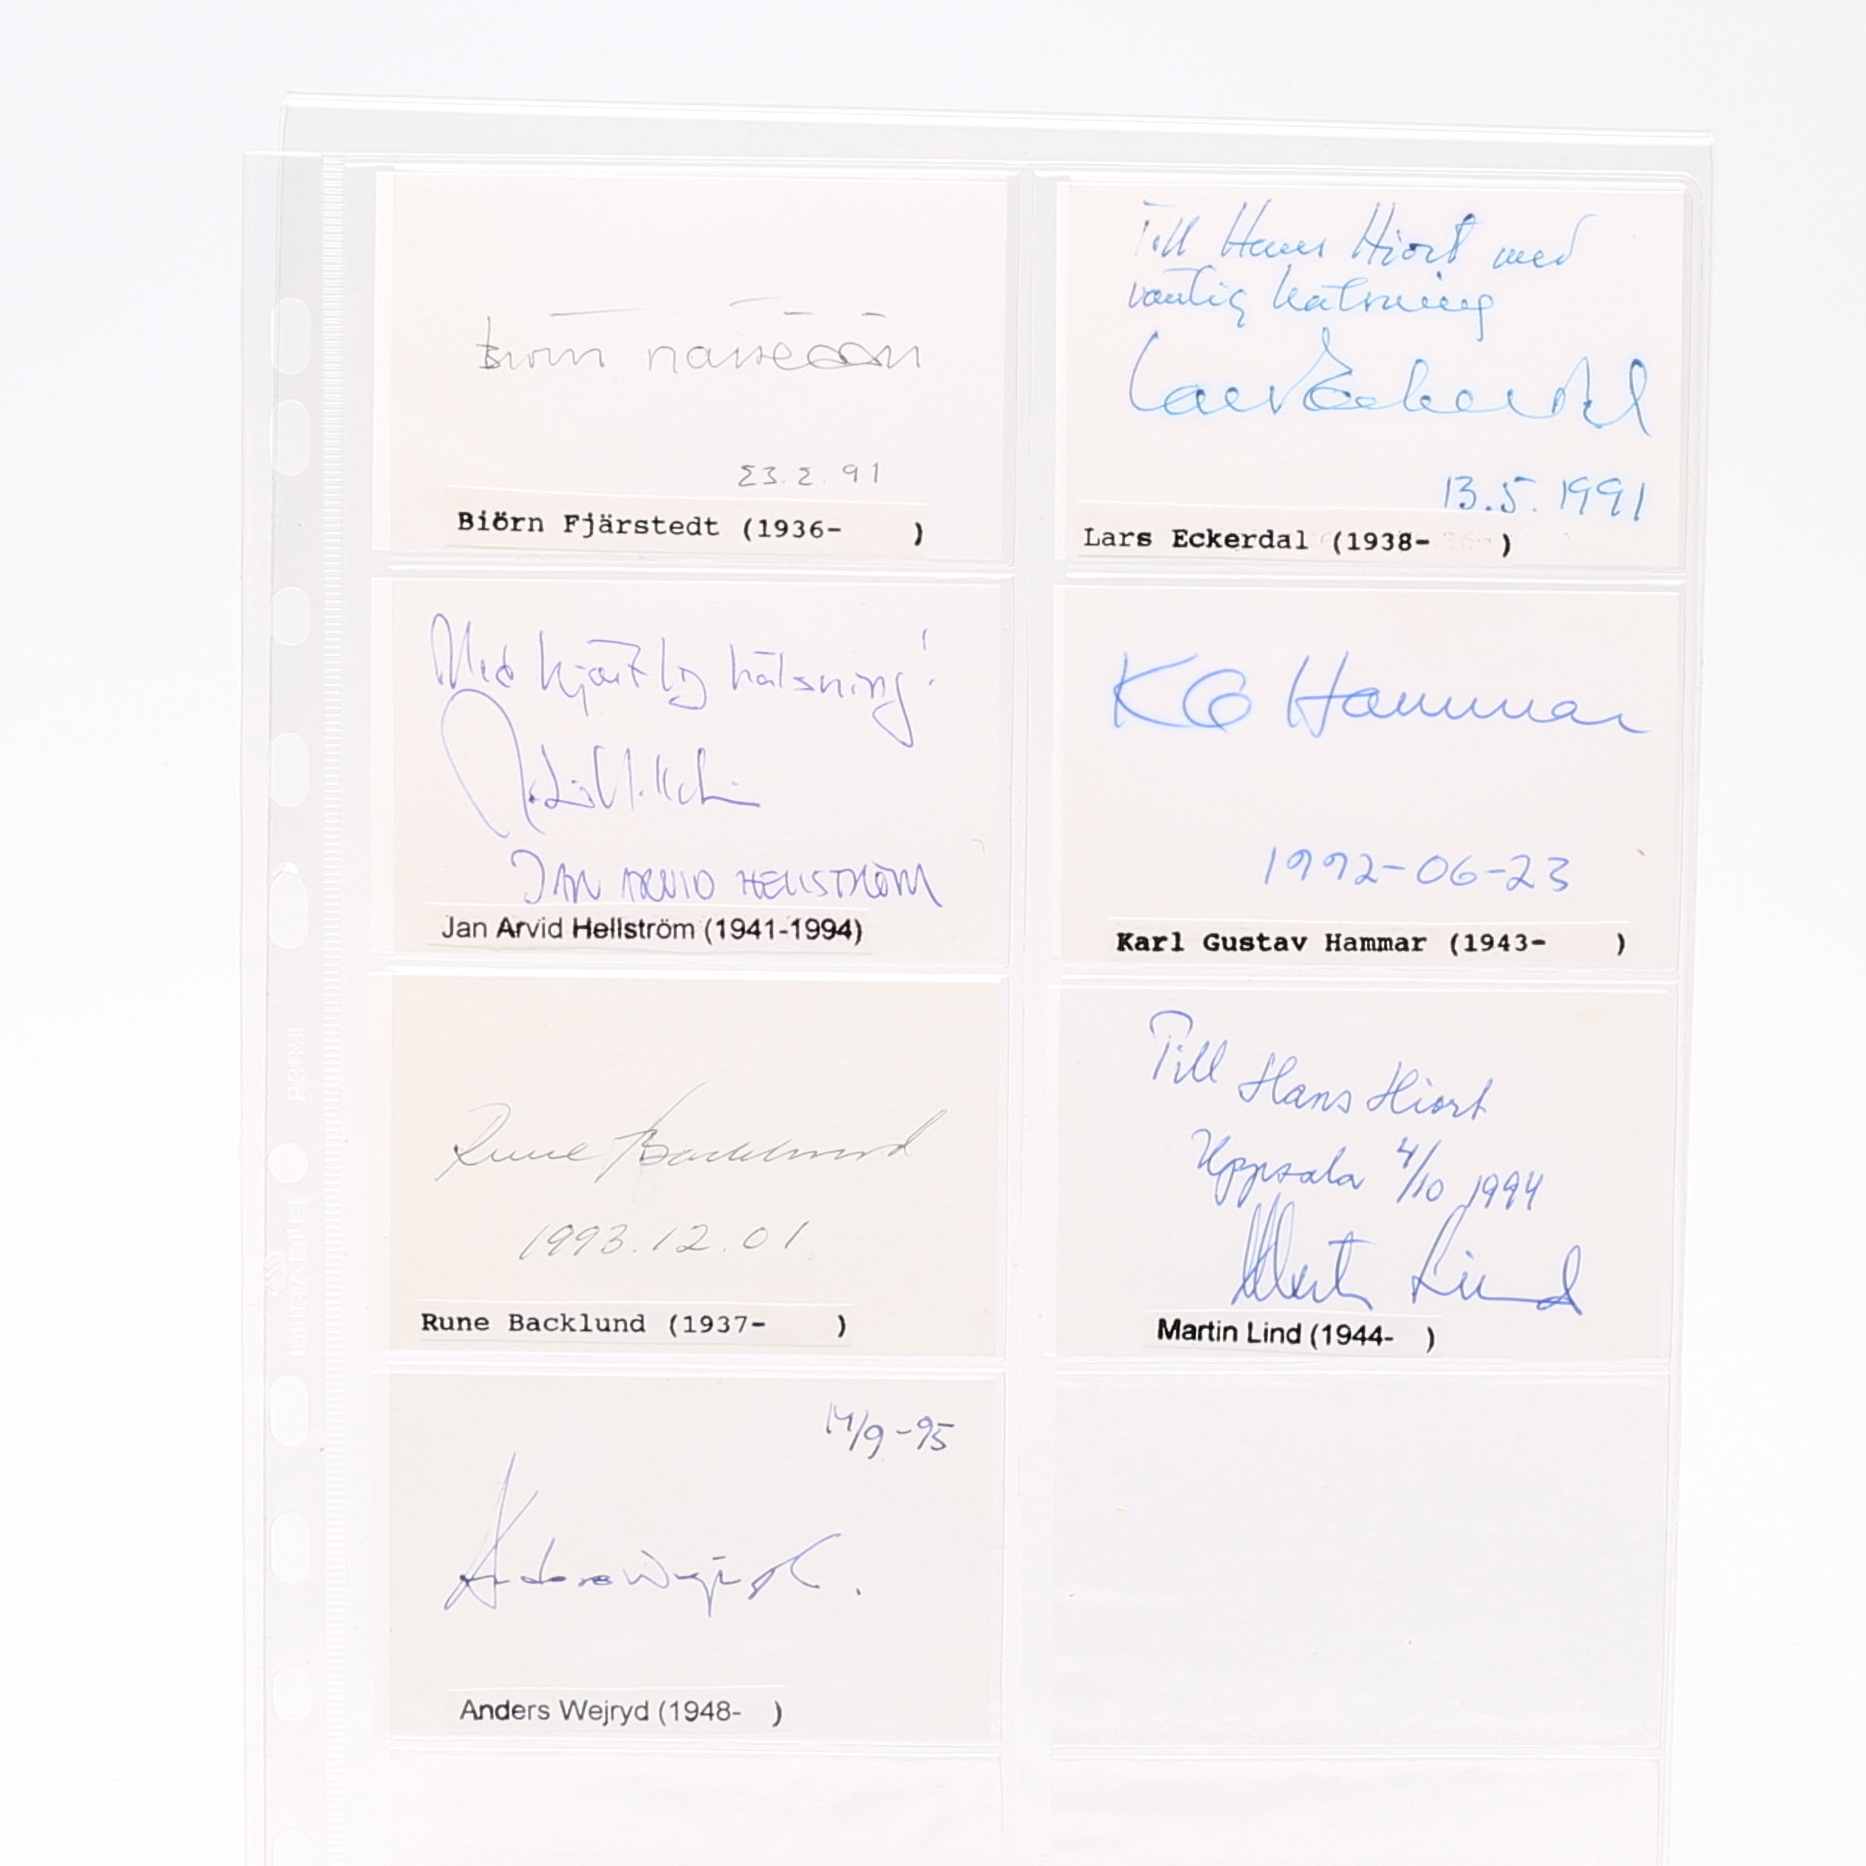 23.2.91
Biörn Fjärstedt (1936- )
Till Hans Hiort med
vänlig hälsning
Lars Eckerdal
13.5.1991
Lars Eckerdal (1938- )
Med hjärtlig hälsning!
JAN ARVID HELLSTRÖM
Jan Arvid Hellström (1941-1994)
KG Hammar
1992-06-23
Karl Gustav Hammar (1943- )
Rune Backlund
1993.12.01
Rune Backlund (1937- )
Till Hans Hiort
Uppsala 4/10 1994
Martin Lind
Martin Lind (1944- )
14/9-95
Anders Wejryd.
Anders Wejryd (1948- )
DURABLE